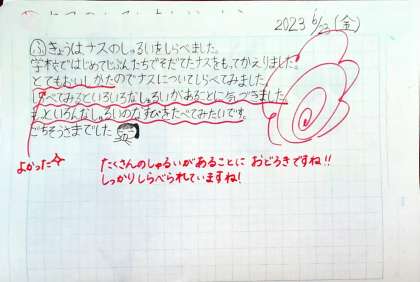 2023 6/23 (金)
ふ きょうはナスのしゅるいをしらべました。
学校ではじめてじぶんたちでそだてたナスをもってかえりました。
とてもおいしかたのでナスについてしらべてみました。
しらべてみるといろいろなしゅるいがあることに気づきました。
もっといろんなしゅるいのなすびをたべてみたいです。
ごちそうさまでした
よかった
たくさんのしゅるいがあることに おどろきですね!!
しっかりしらべられていますね!